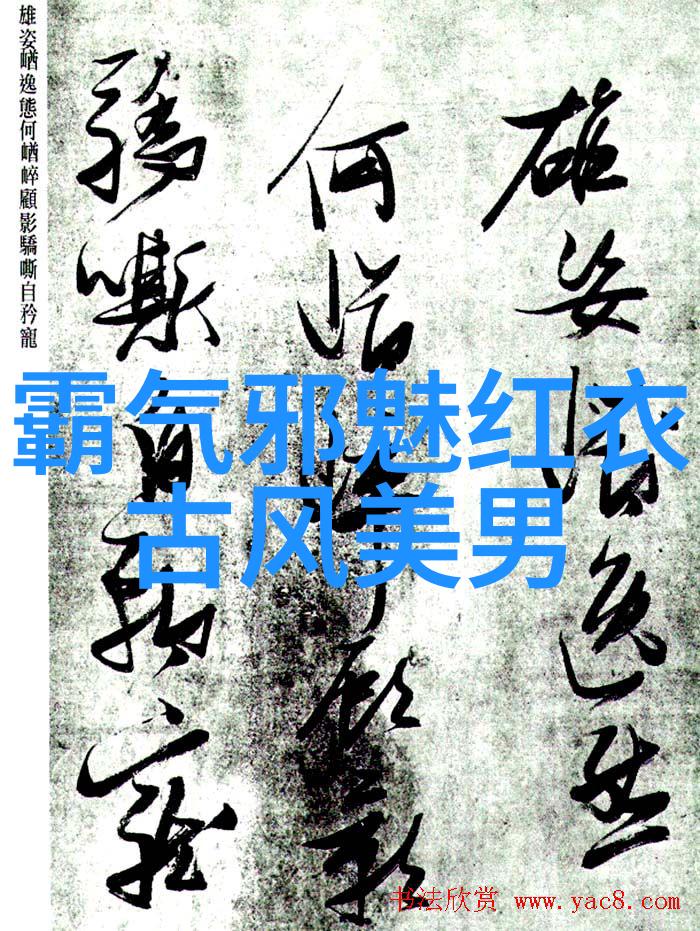 雄姿崷逸態何崷崒顧影驕嘶自矜寵
雄姿崷逸態
何崷崒顧影
驕嘶自矜寵
霸气邪魅红衣
古风美男
书法欣赏 www.yac8.com